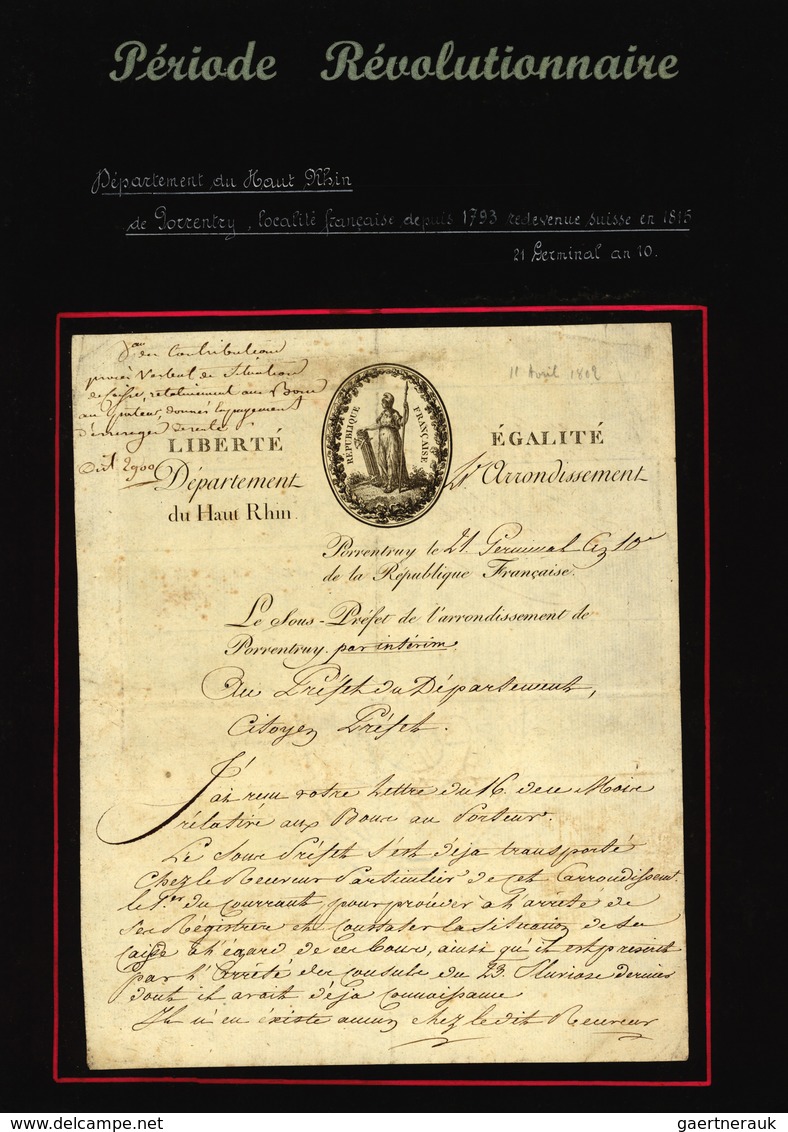 Période Révolutionnaire
Département du Haut Rhin
de Porrentry, localité française depuis 1793 redevenue suisse en 1815
21 Germinal an 10.
des Contributions
procès Verbal de Situation
de Caisse, relativement aux Bons
au Porteur, donnés en payement
d'arrérages de rente
11 Avril 1802
RÉPUBLIQUE FRANÇAISE
LIBERTÉ ÉGALITÉ
Département Arrondissement
du Haut Rhin.
Porrentruy le 21 Germinal an 10e
de la République Française.
Le Sous-Préfet de l'arrondissement de
Porrentruy. par intérim.
Au Préfet du Département,
Citoyen Préfet.
J'ai reçu votre Lettre du 16. de ce Mois
rélative aux Bons au Porteur.
Le Sous Préfet s'est déja transporté
Chez le Receveur Particulier de cet arrondissemt.
le 1er du Courrant, pour proceder à l'arrêté de
Ses Régistres et constater la situation de Sa
caisse à l'égard de ces bons, ainsi qu'il est prescrit
par l'Arrêté des consuls du 23. Pluviose dernier
dont il avait déja connaissance
Il n'en éxiste aucun chez le dit Receveur
TO DELCAMPE.NET
gaertnerauk